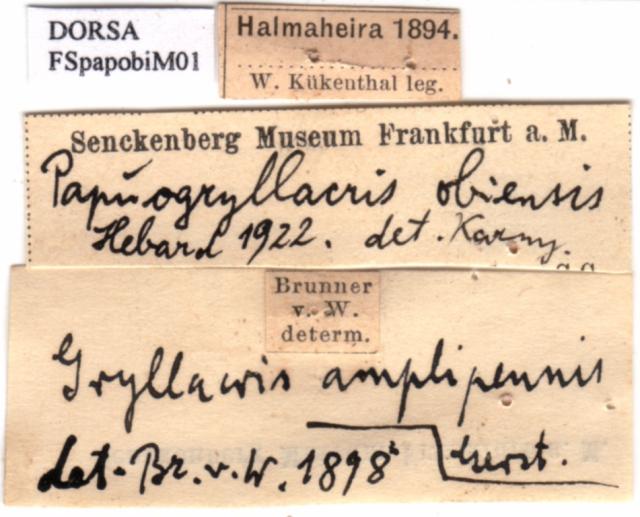 DORSA
FSpapobiM01
Halmaheira 1894.
W. Kükenthal leg.
Senckenberg Museum Frankfurt a. M.
Papuogryllacris obiensis
Hebard 1922. det. Karny.
Brunner
v. W.
determ.
Gryllacris amplipennis
Gerst.
det. Br. v. W. 1898